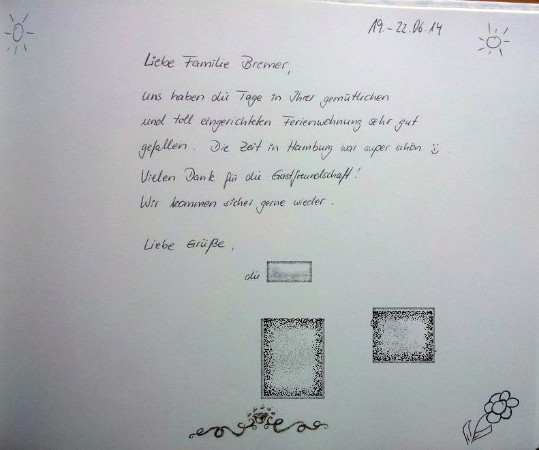 19.-22.06.14
Liebe Familie Bremer,
uns haben die Tage in Ihrer gemütlichen
und toll eingerichteten Ferienwohnung sehr gut
gefallen. Die Zeit in Hamburg war super schön ☺.
Vielen Dank für die Gastfreundschaft!
Wir kommen sicher gerne wieder.
Liebe Grüße,
die